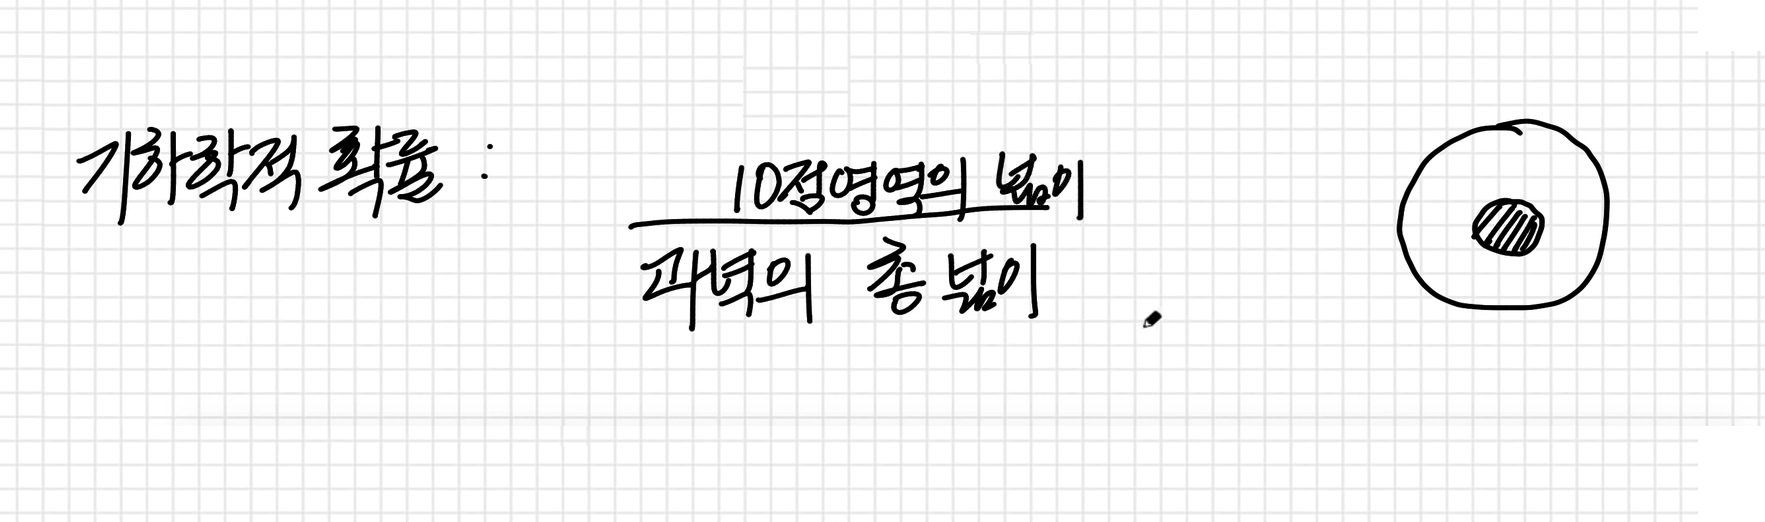 기하학적 확률 :
10점영역의 넓이
과녁의 총 넓이